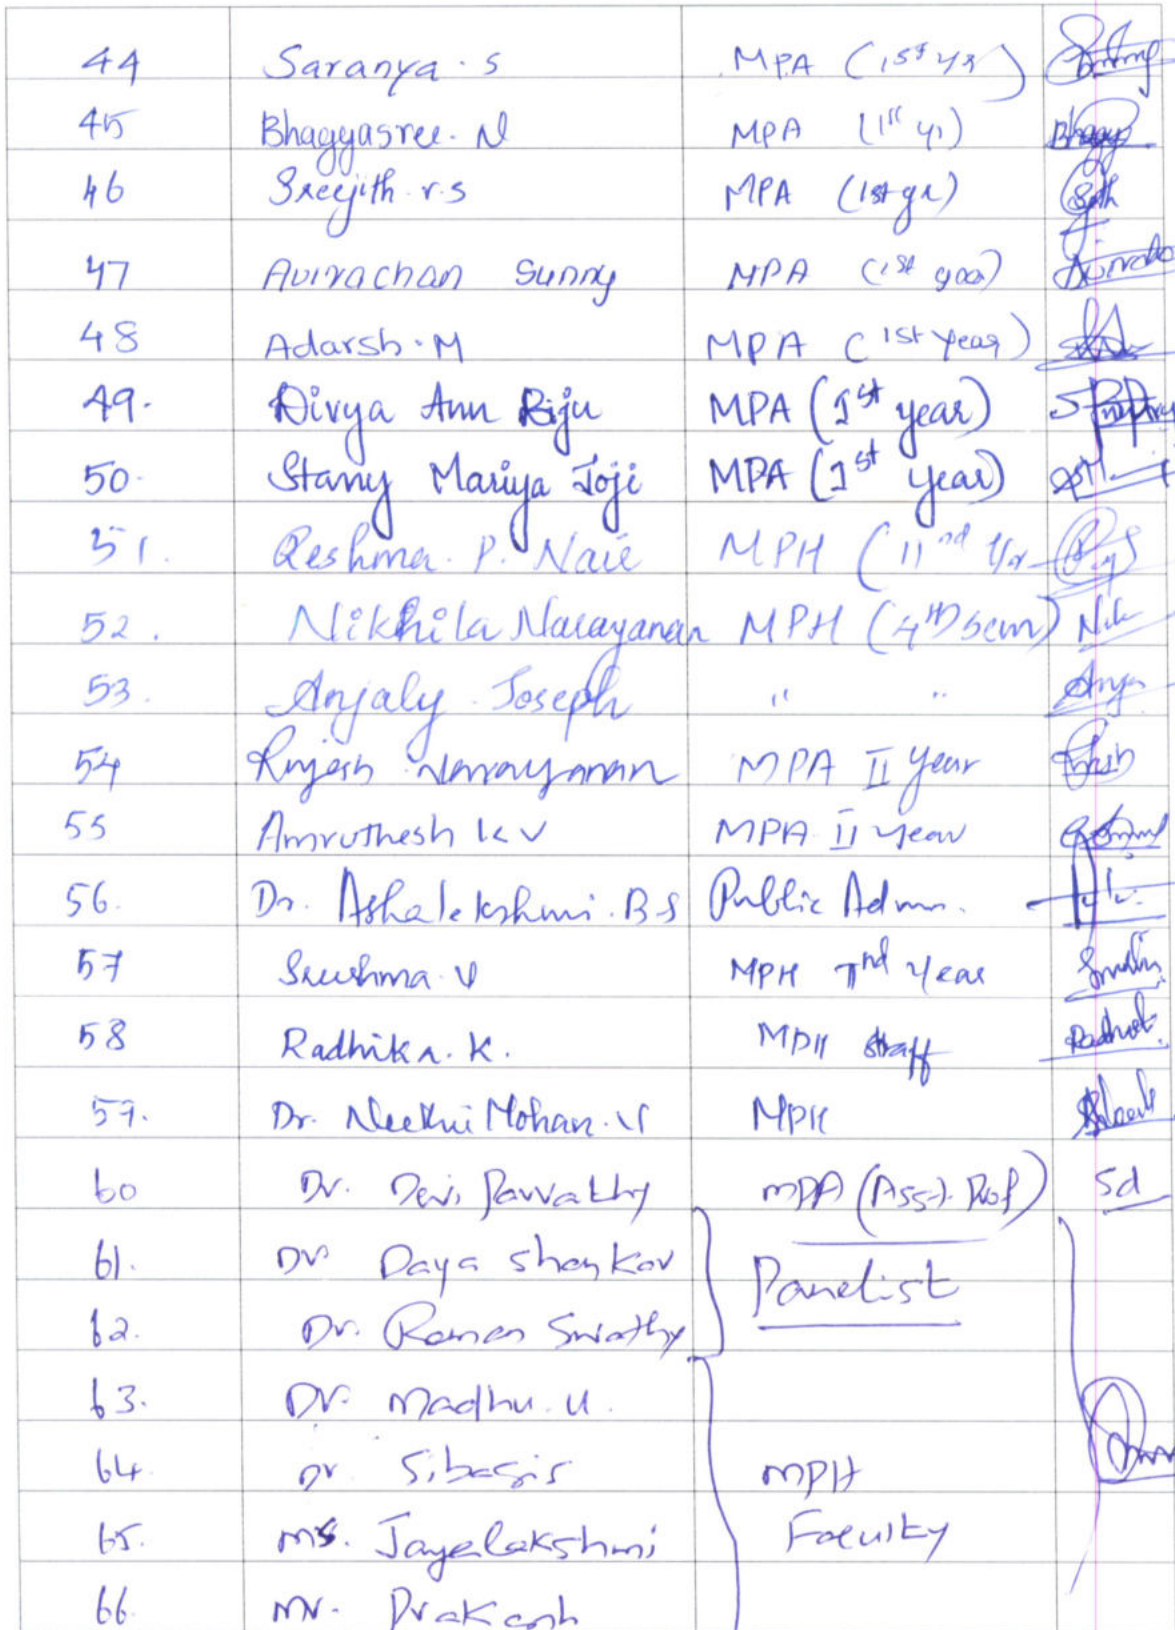 44 Saranya. S MPA (1st yr)
45 Bhagyasree. N MPA (1st yr)
46 Sreejith. r.s MPA (1st yr)
47 Avirachan Sunny MPA (1st year)
48 Adarsh. M MPA (1st year)
49. Divya Ann Biju MPA (1st year)
50. Stany Mariya Joji MPA (1st year)
51. Reshma. P. Nair MPH (IInd Yr
52. Nikhila Narayanan MPH (4th sem) Nik
53. Anjaly Joseph " "
54 Rajesh Narayanan MPA II year
55 Amruthesh K V MPA II year
56. Dr. Ashalekshmi. B S Public Admn.
57 Sushma. V MPH IInd Year
58 Radhika. K. MPH staff
59. Dr. Neethu Mohan. V MPH
60 Dr. Devi Parvathy MPA (Asst. Prof) Sd
61. Dr Daya Shankar Panelist
62. Dr. Raman Swathy
63. Dr. Madhu. U.
64. Dr. Sibasis MPH
65. Ms. Jayalakshmi Faculty
66. Mr. Prakash